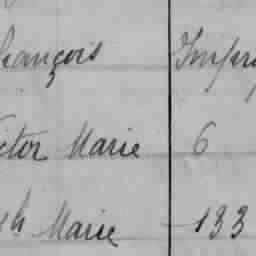 François Impr
ictor Marie 6
ph Marie 133